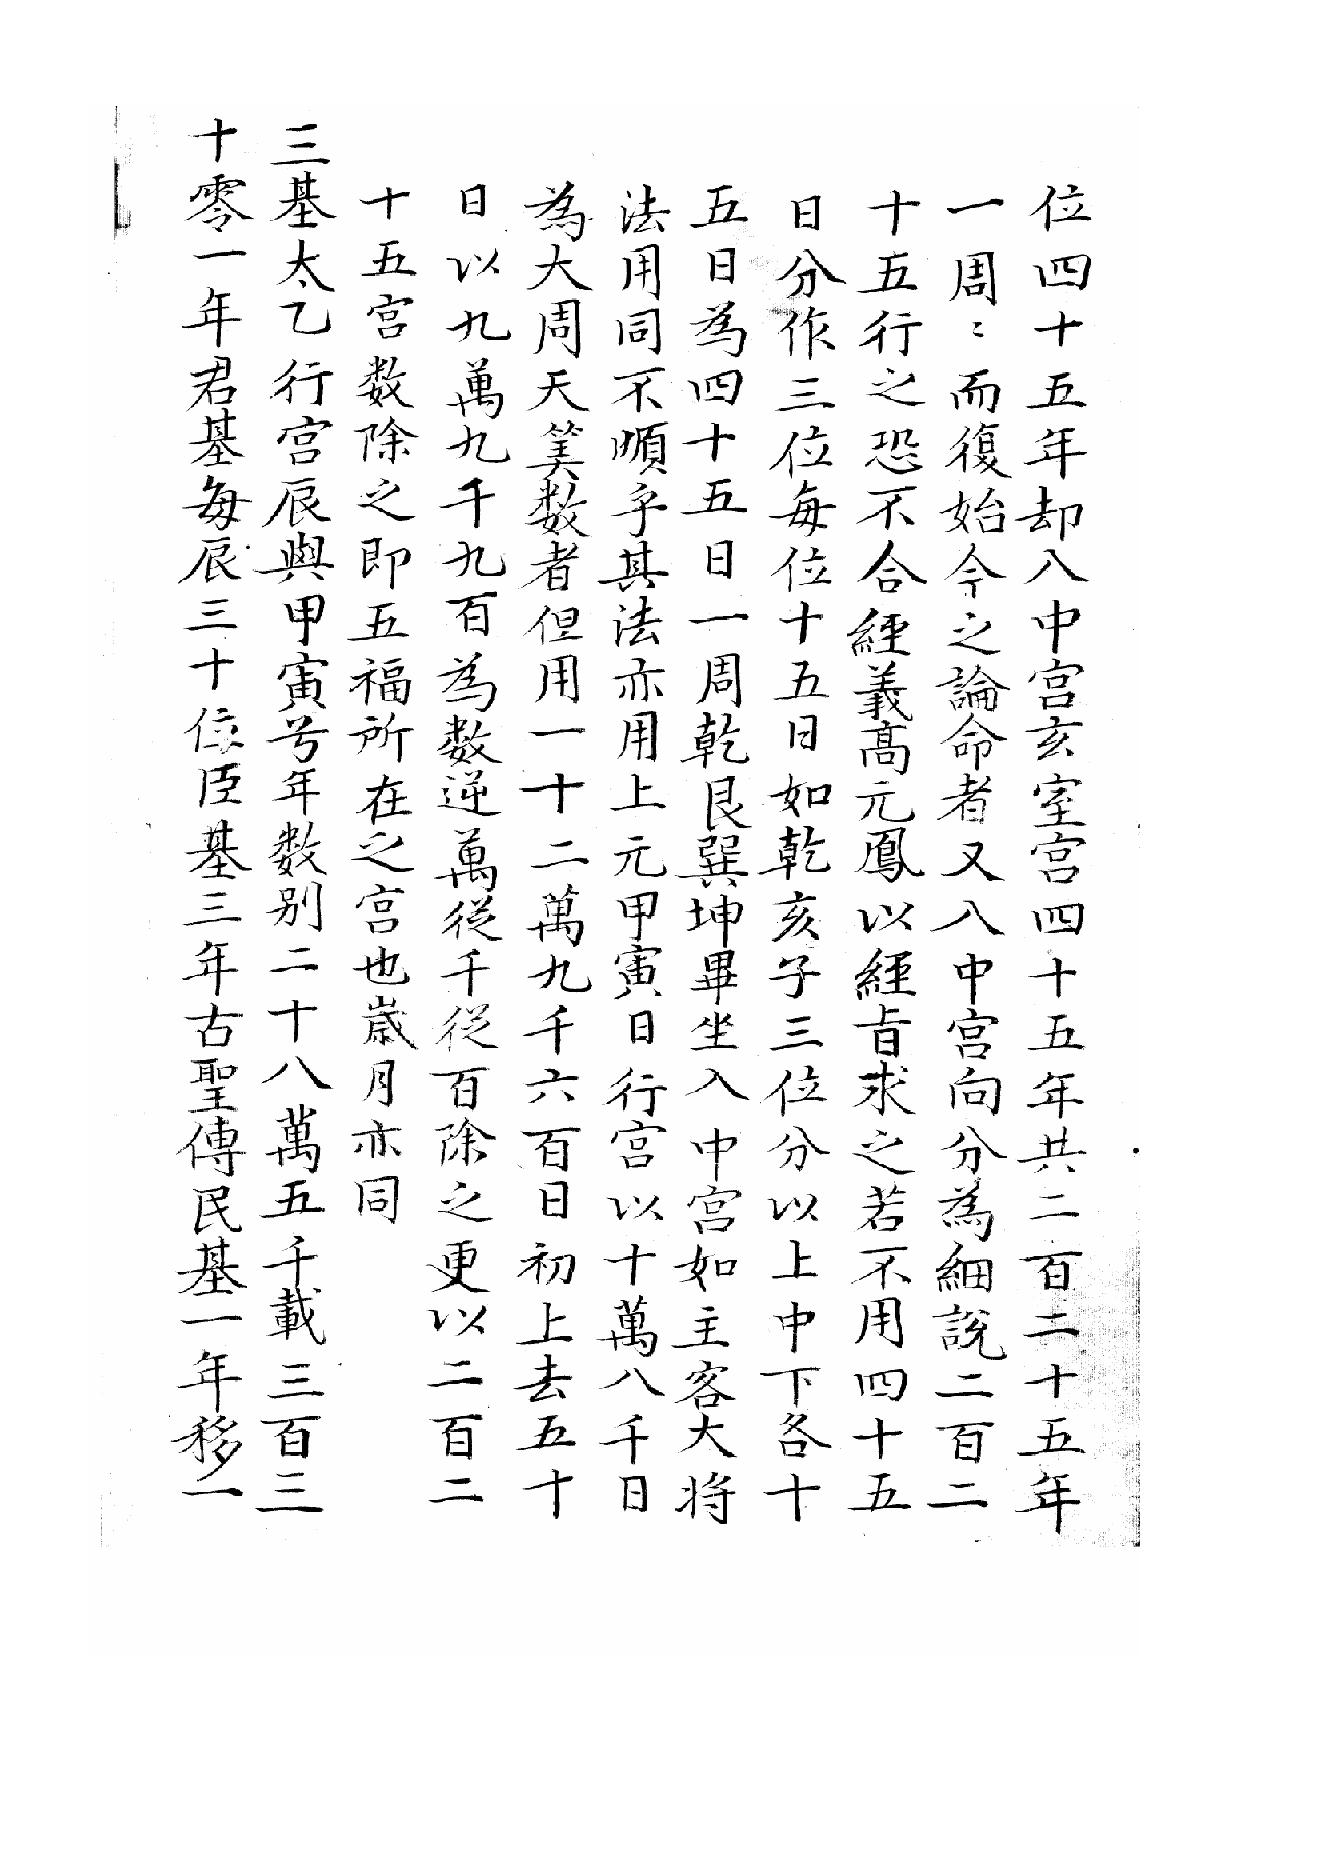 位四十五年却八中宫亥室宫四十五年共二百二十五年
一周〻而復始今之論命者又八中宫向分為細說二百二
十五行之恐不合經義髙元鳳以經旨求之若不用四十五
日分作三位每位十五日如乾亥子三位分以上中下各十
五日為四十五日一周乾艮巽坤畢坐入中宫如主客大将
法用同不順乎其法亦用上元甲寅日行宫以十萬八千日
為大周天筭数者但用一十二萬九千六百日初上去五十
日以九萬九千九百為数逆萬從千從百除之更以二百二
十五宫数除之即五福所在之宫也歲月亦同
三基太乙行宫辰與甲寅号年数别二十八萬五千載三百三
十零一年君基每辰三十位臣基三年古聖傳民基一年移一